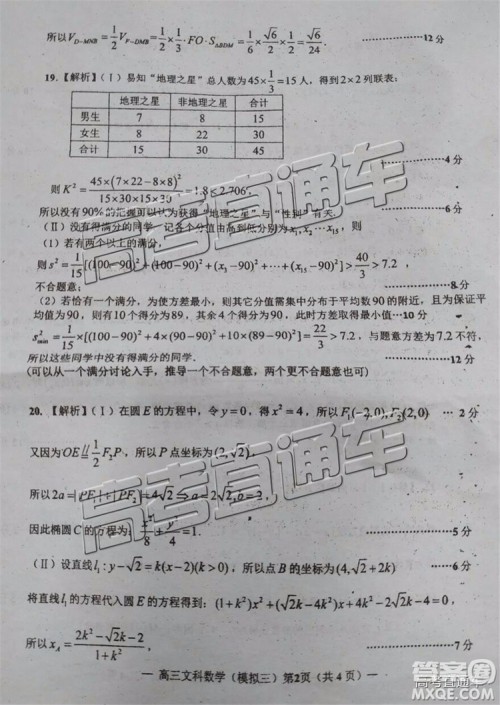 所以V_{D-MNB}=\frac{1}{2}V_{F-DMB}=\frac{1}{2}×\frac{1}{3}·FO·S_{△BDM}=\frac{1}{6}×\frac{\sqrt{2}}{2}×\frac{\sqrt{3}}{2}=\frac{\sqrt{6}}{24}. …………12分
19.【解析】(Ⅰ)易知“地理之星”总人数为45×\frac{1}{3}=15人，得到2×2列联表：
地理之星 非地理之星 合计
男生 7 8 15
女生 8 22 30
合计 15 30 45
…………4分
则K²=\frac{45×(7×22-8×8)²}{15×30×15×30}=1.8≤2.706,
所以没有90%的把握可以认为获得“地理之星”与“性别”有关. …………6分
(Ⅱ)没有得满分的同学，记各个分值由高到低分别为x₁,x₂,…x₁₅，则
(1)若有两个以上的满分，
则s²=\frac{1}{15}[(100-90)²+(100-90)²+(x₃-90)²+…+(x₁₅-90)²]>\frac{40}{3}>7.2，
不合题意； …………8分
(2)若恰有一个满分，为使方差最小，则其它分值需集中分布于平均数90的附近，且为保证平
均值为90，则有10个得分为89，其余4个得分为90，此时方差取得最小值…10分
s²_{min}=\frac{1}{15}[(100-90)²+4×(90-90)²+10×(89-90)²]=\frac{22}{3}>7.2，与题意方差为7.2不符.
所以这些同学中没有得满分的同学. …………12分
(可以从一个满分讨论入手，推导一个不合题意，两个更不合题意也可)
20.【解析】(Ⅰ)在圆E的方程中，令y=0，得x²=4，所以F₁(-2,0),F₂(2,0) … 2分
又因为OE⫽\frac{1}{2}F₂P，所以P点坐标为(2,\sqrt{2}),
所以2a=|PF₁|+|PF₂|=4\sqrt{2}⇒a=2\sqrt{2},a=2,
因此椭圆C的方程为：\frac{x²}{8}+\frac{y²}{4}=1. …………5分
(Ⅱ)设直线l₁:y-\sqrt{2}=k(x-2)(k>0)，所以点B的坐标为(4,\sqrt{2}+2k) …………6分
将直线l₁的方程代入圆E的方程得到：
所以x_A=\frac{2k²-\sqrt{2}k-2}{1+k²} …………7分
— 高三文科数学（模拟三）第2页（共4页）—
高考直通车
高考直通车
答案圈
MXQE.COM